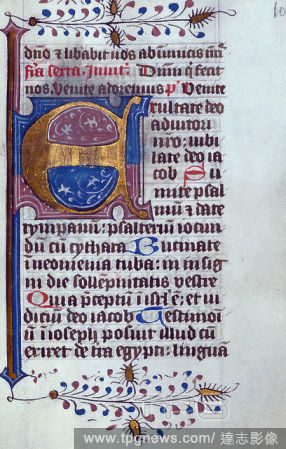 10
dño ⁊ libabit uos ab inimicis
fr̃a sexta. Inuit. Dñum q̃ fecit
nos. Venite adoremus p̃ Venite
Exultate deo
adiutori
nr̃o: iubi
late deo ia
cob Su
mite psal
mũ ⁊ date
tympanũ: psalteriũ iocun
dũ cũ cythara Bucinate
i neomenia tuba: in insig
ni die sollepnitatis vestre
Quia p̃ceptũ i isrl̃ ẽ: et iu
diciũ deo iacob Testimoni
ũ i ioseph posuit illud cũ
exiret de tr̃a egypti: linguã
www.tpgnews.com/ 達志影像